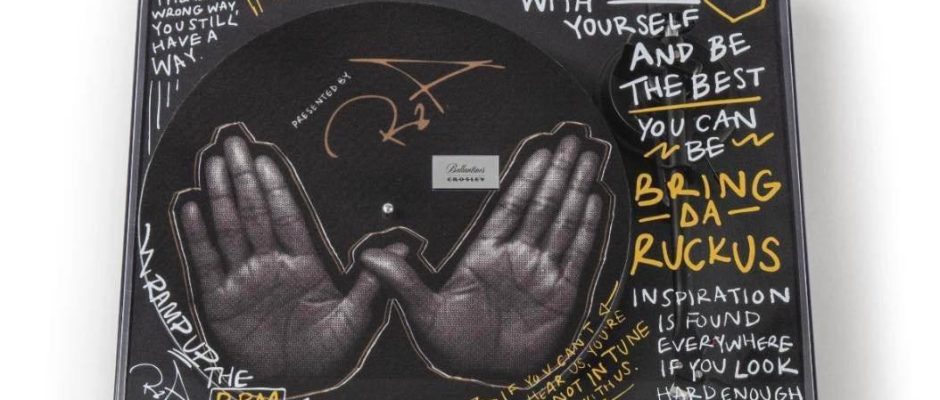 WRONG WAY,
YOU STILL
HAVE A
WAY.
PRESENTED BY
RZA
Ballantine's
CROSLEY
WITH
YOURSELF
AND BE
THE BEST
YOU CAN
BE
BRING
DA
RUCKUS
INSPIRATION
IS FOUND
EVERYWHERE
IF YOU LOOK
HARD ENOUGH
RAMP UP
THE
RPM
RZA
IF YOU CAN'T
HEAR US, YOU'RE
NOT IN TUNE
WITH US.